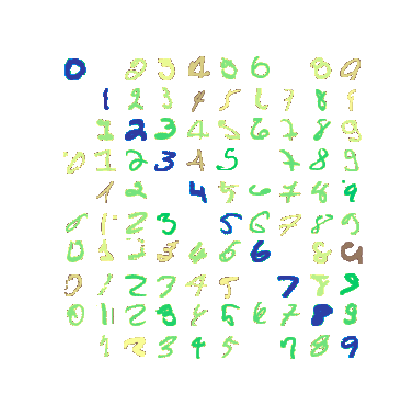 0 0 3 4 0 6 0 9
1 2 3 9 5 6 7 8 9
1 2 3 4 5 6 7 8 9
0 1 2 3 4 5 7 8 9
1 2 4 9 6 7 8 9
0 1 2 3 5 6 7 8 9
0 1 3 3 6 6 6 8 9
0 1 2 3 4 5 7 8 9
0 1 2 8 4 5 6 7 8 9
1 2 3 4 5 7 8 9